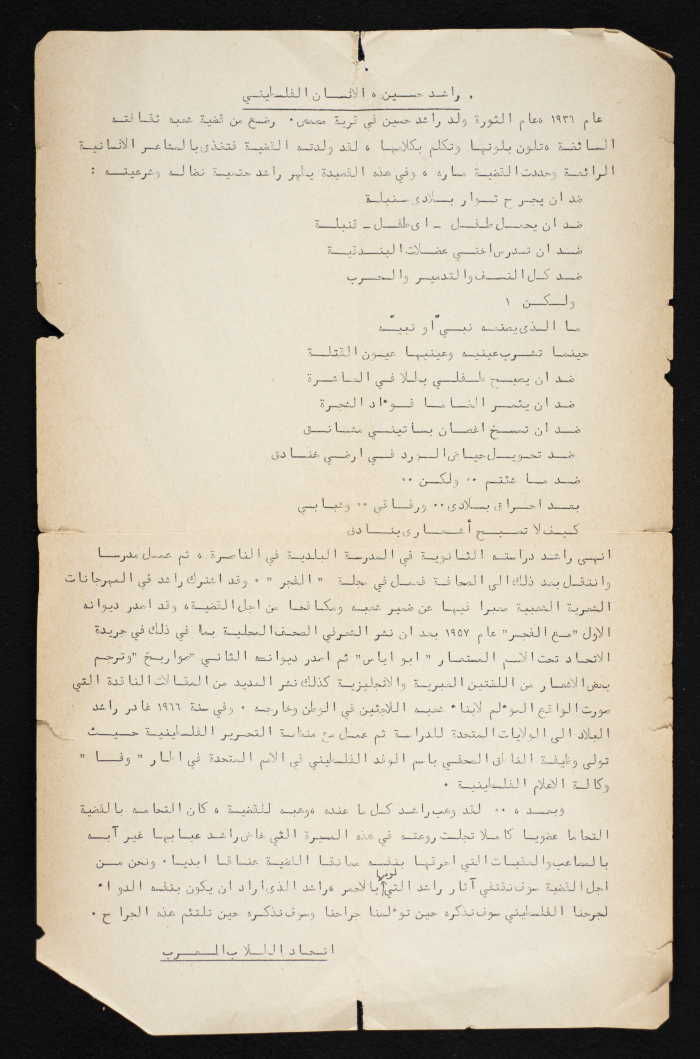 . راشد حسين ، الانسان الفلسطيني
عام ١٩٣٦ ،عام الثورة ولد راشد حسين في قرية مصمص . رضع من قضية شعبه ثقافته
السائغة ،تلون بلونها وتكلم بكلامها ، لقد ولدته القضية فتغذى بالمشاعر الانسانية
الرائعة وحددت القضية مساره ، وفي هذه القصيدة يظهر راشد حتمية نضاله وشرعيته :
ضد ان يجرح ثوار بلادي سنبلة
ضد ان يحمل طفل ـ اى طفل ـ قنبلة
ضد ان تدرس اختي عضلات البندقية
ضد كل النسف والتدمير والحرب
ولكن ١
ما الذى يصنعه نبيّ او نبيّه
حينما تشرب عينيه وعينيها عيون القتلة
ضد ان يصبح طفلي بطلا في العاشرة
ضد ان يثمر الغاما فوءاد الشجرة
ضد ان تمسخ اغصان بساتيني مشانق
ضد تحويل حياض الورد في ارضي خنادق
ضد ما شئتم .. ولكن ..
بعد احراق بلادى .. ورفاقي .. وشبابي
كيف لا تصبح أشعارى بنادق
انهى راشد دراسته الثانوية في المدرسة البلدية في الناصرة ، ثم عمل مدرسا
وانتقل بعد ذلك الى الصحافة فعمل في مجلة " الفجر " . وقد اشترك راشد في المهرجانات
الشعرية الشعبية معبرا فيها عن ضمير شعبه ومكافحا من اجل القضية، وقد اصدر ديوانه
الاول "مع الفجر" عام ١٩٥٧ بعد ان نشر الشعر في الصحف المحلية بما في ذلك في جريدة
الاتحاد تحت الاسم المستعار " ابو اياس" ثم اصدر ديوانه الثاني "صواريخ "وترجم
بعض الاشعار من اللغتين العبرية والانجليزية كذلك نشر العديد من المقالات الناقدة التي
صورت الواقع الموءلم لابناء شعبه اللاجئين في الوطن وخارجه . وفي سنة ١٩٦٦ غادر راشد
البلاد الى الولايات المتحدة للدراسة ثم عمل مع منظمة التحرير الفلسطينية حيث
تولى وظيفة الناطق الصحفي باسم الوفد الفلسطيني في الامم المتحدة في اطار " وفا "
وكالة الاعلام الفلسطينية .
وبعد ، .. لقد وهب راشد كل ما عنده ،وهبه للقضية ، كان التحامه بالقضية
التحاما عضويا كاملا تجلت روعته في هذه المسيرة التي خاض راشد عبابها غير آبه
بالمصاعب والعقبات التي احرقها بنفسه معانقا القضية عناقا ابديا . ونحن من
اجل القضية سوف نقتفي آثار راشد التي لونها بالاحمر ،راشد الذى اراد ان يكون بنفسه الدواء
لجرحنا الفلسطيني سوف نذكره حين توءلمنا جراحنا وسوف نذكره حين تلتئم هذه الجراح .
اتحاد الطلاب العرب